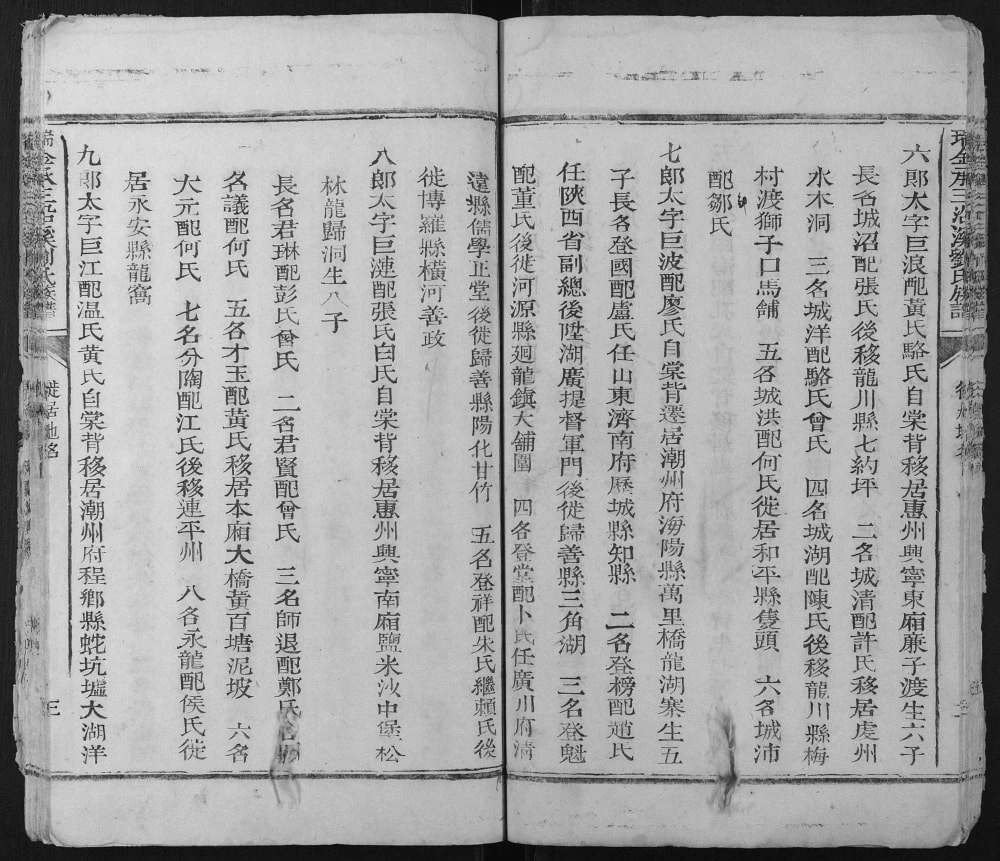 六郎太字巨浪配黃氏駱氏自棠背移居惠州興寧東廂亷子渡生六子
長名城沼配張氏後移龍川縣七約坪　二名城清配許氏移居虔州
水木洞　三名城洋配駱氏曾氏　四名城湖配陳氏後移龍川縣梅
村渡獅子口馬舖　五名城洪配何氏徙居和平縣隻頭　六名城沛
配鄒氏
七郎太字巨波配廖氏自棠背遷居潮州府海陽縣萬里橋龍湖寨生五
子長名登國配盧氏任山東濟南府歷城縣知縣　二名登榜配趙氏
任陝西省副總後陞湖廣提督軍門後徙歸善縣三角湖　三名登魁
配董氏後徙河源縣廻龍鎮大舖圍　四名登堂配卜氏任廣川府清
遠縣儒學正堂後徙歸善縣陽化甘竹　五名登祥配朱氏繼賴氏後
徙博羅縣橫河善政
八郎太字巨漣配張氏白氏自棠背移居惠州興寧南廂鹽米沙中堡松
林龍歸洞生八子
長名君琳配彭氏曾氏　二名君賢配曾氏　三名師退配鄭氏
名議配何氏　五名才玉配黃氏移居本廂大橋黃百塘泥坡　六名
大元配何氏　七名分陶配江氏後移連平州　八名永龍配侯氏徙
居永安縣龍窩
九郎太字巨江配温氏黄氏自棠背移居潮州府程鄉縣蛇坑墟大湖洋
徙居地名
三